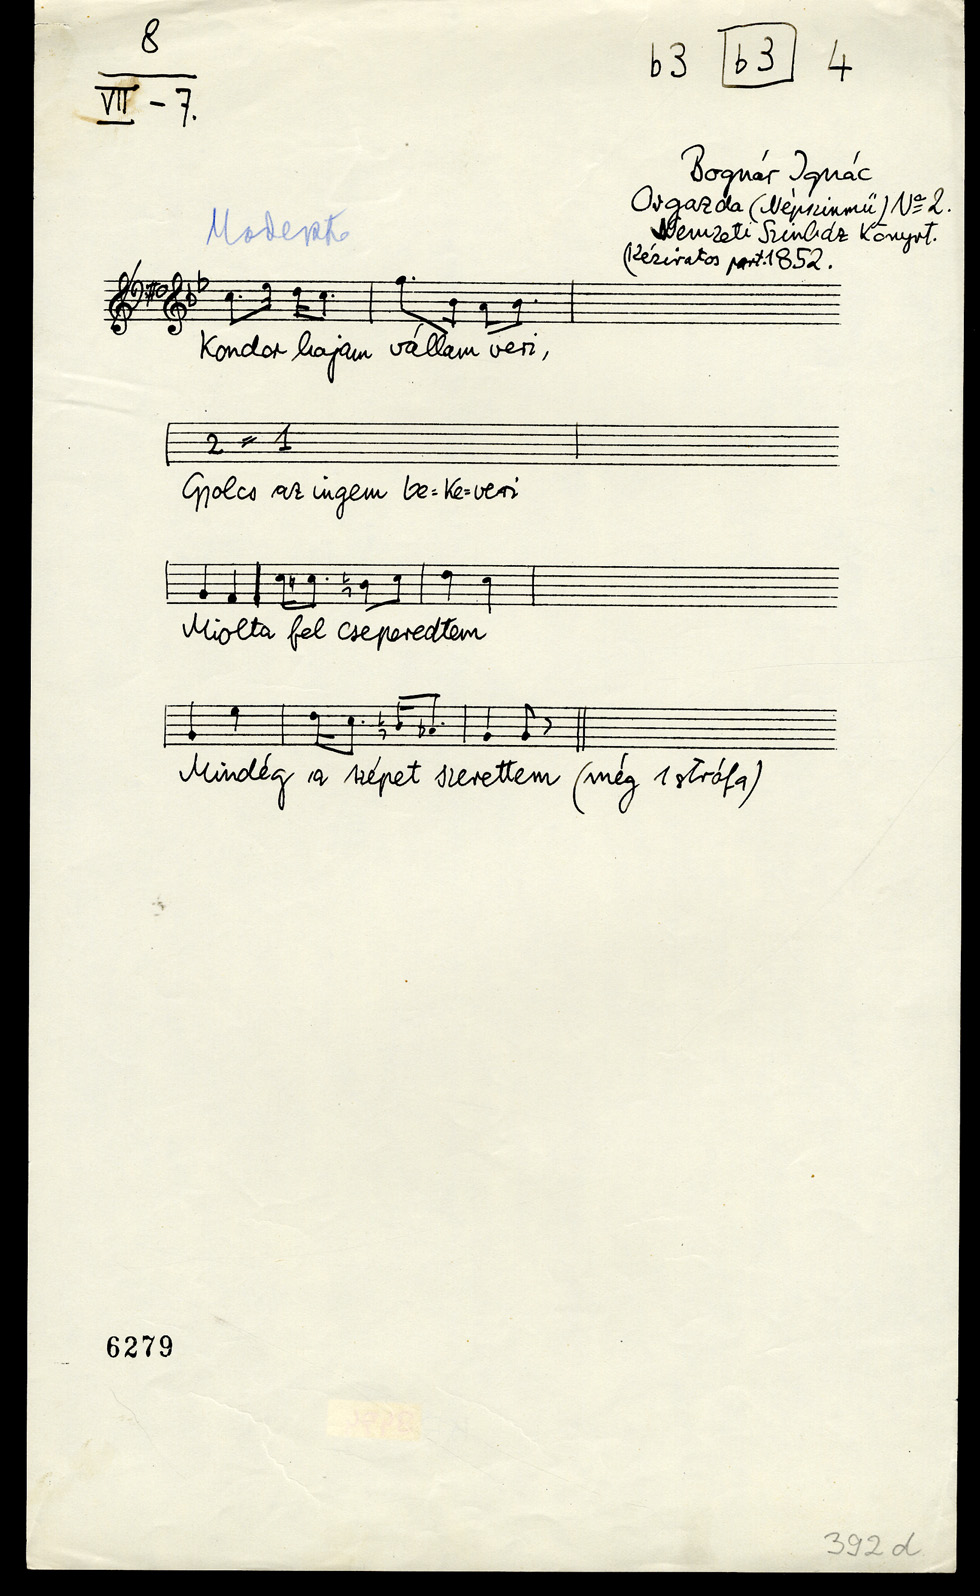 8
VII - 7.
b3 b3 4
Bognár Ignác
Orgazda (Népszinmű) No 2.
Nemzeti Szinház Könyvt.
(Kéziratos part. 1852.
Moderato
Kondor hajam vállam veri,
2 = 1
Gyolcs az ingem be=ke=veri
Miolta fel cseperedtem
Mindég a szépet szerettem (még 1 strófa)
6279
392 d